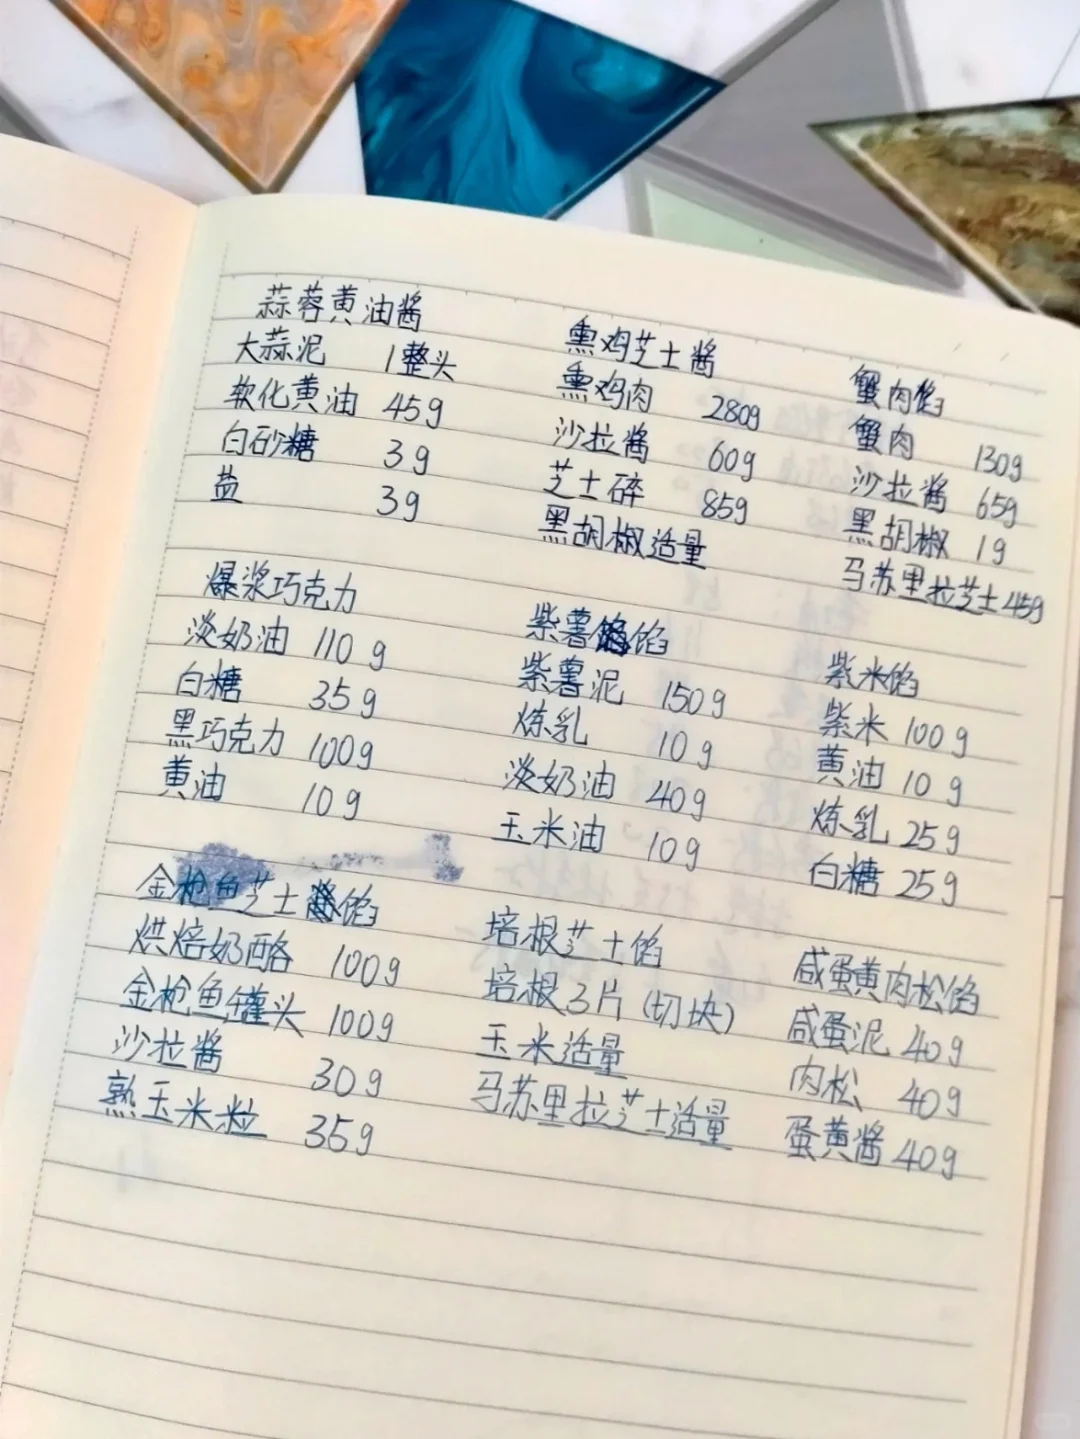 蒜蓉黄油酱
大蒜泥 1整头
软化黄油 45g
白砂糖 3g
盐 3g
熏鸡芝士酱
熏鸡肉 280g
沙拉酱 60g
芝士碎 85g
黑胡椒适量
蟹肉馅
蟹肉 130g
沙拉酱 65g
黑胡椒 1g
马苏里拉芝士45g
爆浆巧克力
淡奶油 110g
白糖 35g
黑巧克力 100g
黄油 10g
紫薯馅
紫薯泥 150g
炼乳 10g
淡奶油 40g
玉米油 10g
紫米馅
紫米 100g
黄油 10g
炼乳 25g
白糖 25g
金枪鱼芝士馅
烘焙奶酪 100g
金枪鱼罐头 100g
沙拉酱 30g
熟玉米粒 35g
培根芝士馅
培根3片(切块)
玉米适量
马苏里拉芝士适量
咸蛋黄肉松馅
咸蛋泥 40g
肉松 40g
蛋黄酱 40g